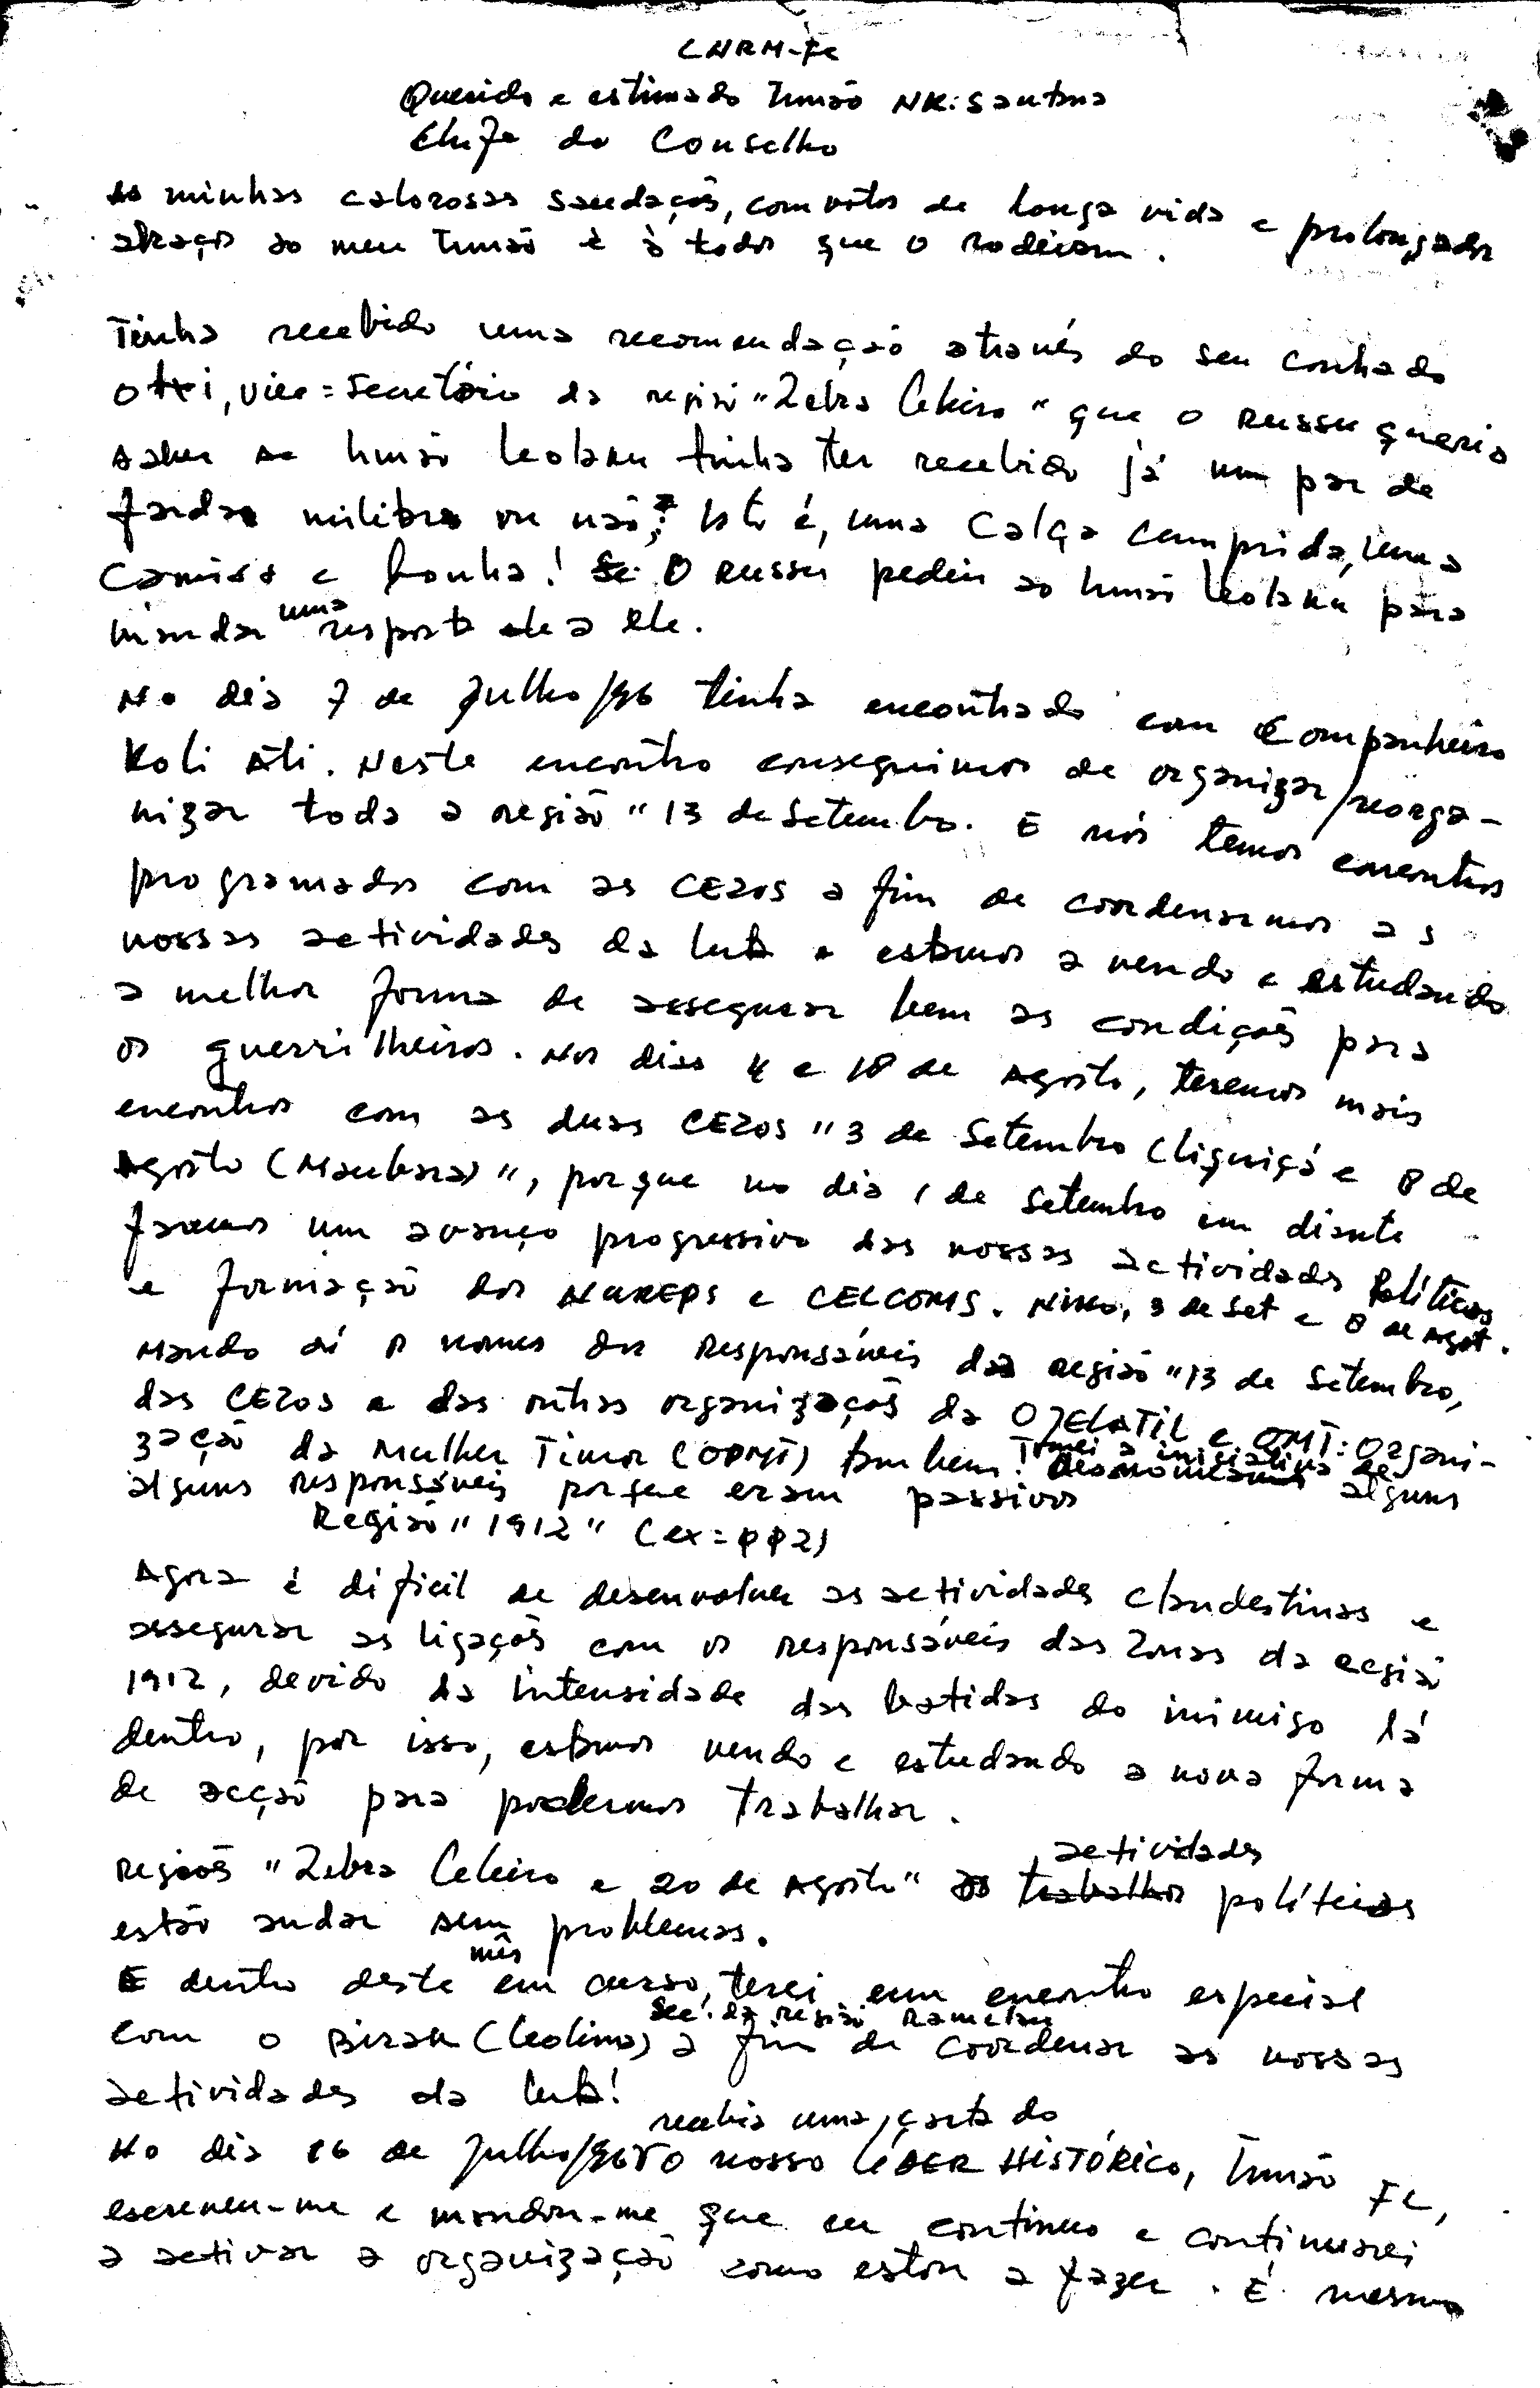 CNRM-Fc
Querido e estimado Irmão NK: Santana
Chefe do Conselho
As minhas calorosas saudações, com votos de longa vida e prolongados
abraços ao meu Irmão e à todos que o rodeiam.
Tinha recebido uma recomendação através do seu cunhado
Otti, vice=secretário da região "Zebra Celeiro" que o Russu queria
saber se Irmão Leolaku tinha ter recebido já um par de
fardas militares ou não? Isto é, uma calça cumprida, uma
camisa e bonha! O Russu pediu ao Irmão Leolaku para
mandar uma resposta a ele.
No dia 7 de Julho/96 tinha encontrado com Companheiro
Koli Ati. Neste encontro conseguimos de organizar/reorga-
nizar toda a região "13 de Setembro. E nós temos encontros
programados com as CEZOS a fim de coordenarmos as
nossas actividades da luta e estamos a vendo e estudando
a melhor forma de assegurar bem as condições para
os guerrilheiros. Nos dias 4 e 18 de Agosto, teremos mais
encontros com as duas CEZOS "3 de Setembro (Liquiçá e 8 de
Agosto (Maubara)", porque no dia 1 de Setembro em diante
faremos um avanço progressivo das nossas actividades Políticas
e formação dos NUREPS e CELCOMS. Niko, 3 de Set e 8 de Agost.
Mando aí os nomes dos Responsáveis das região "13 de Setembro,
das CEZOS e das outras organizações da OJELATIL e OMT: Organi-
zação da Mulher Timor (OPMT) tambem! Tomei a iniciativa de
alguns responsáveis porque eram passivos alguns
Região "1912" (ex=PP2)
Agora é dificil de desenvolver as actividades clandestinas e
assegurar as ligações com os responsáveis das zonas da região
1912, devido da intensidade das batidas do inimigo lá
dentro, por isso, estamos vendo e estudando a nova forma
de acção para podermos trabalhar.
Regiões "Zebra Celeiro e 20 de Agosto" as trabalhos actividades políticas
estão andar sem problemas.
E dentro deste mês em curso, terei um encontro especial
com o Birak (Leolima) Sec. da região Ramelau a fim de coordenar as nossas
actividades da luta!
No dia 16 de Julho/96 recebia uma carta do nosso LÍDER HISTÓRICO, Irmão FC,
escreveu-me e mandou-me que eu continuo e continuarei
a activar a organização como estou a fazer. É mesmo